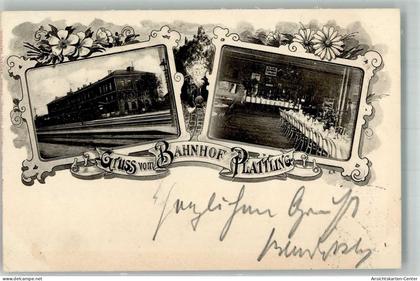 GRUSS VOM BAHNHOF PLATTLING
Herzlichen Gruß
Ansichtskarten-Center